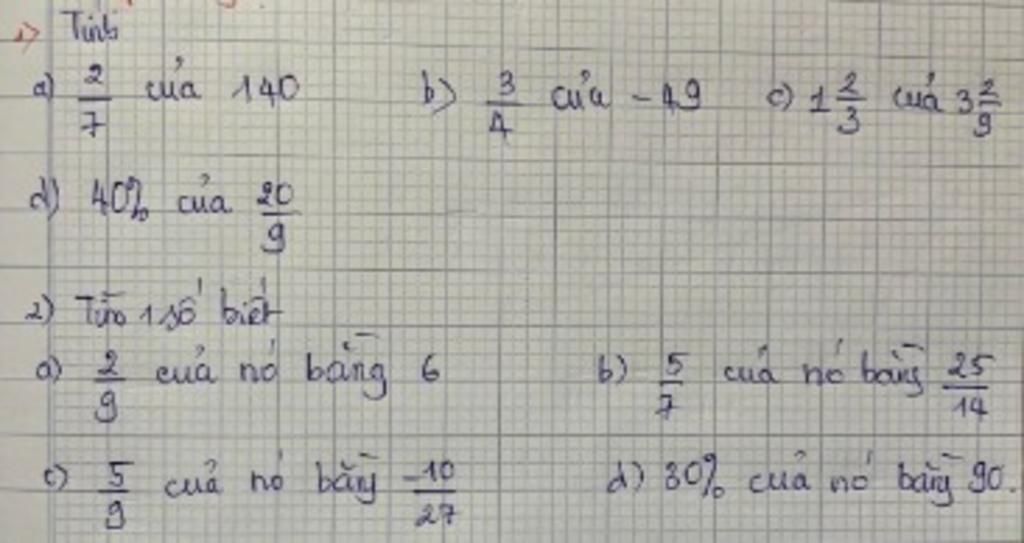 1) Tính
a) 2/7 của 140 b) 3/4 của -49 c) 1 2/3 của 3 2/9
d) 40% của 20/9
2) Tìm 1 số biết
a) 2/9 của nó bằng 6 b) 5/7 của nó bằng 25/14
c) 5/9 của nó bằng -10/27 d) 30% của nó bằng 90.